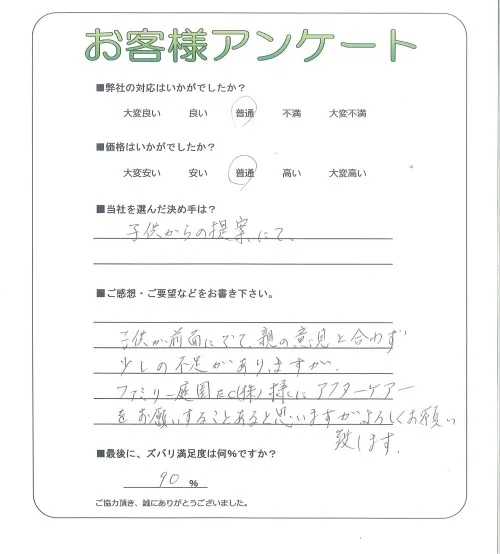 お客様アンケート
■弊社の対応はいかがでしたか?
大変良い 良い 普通 不満 大変不満
■価格はいかがでしたか?
大変安い 安い 普通 高い 大変高い
■当社を選んだ決め手は?
子供からの提案にて、
■ご感想・ご要望などをお書き下さい。
子供が前面にでて、親の意見と合わず
少しの不足がありますが、
ファミリー庭園EC(株)様にアフターケアー
をお願いすることあると思いますがよろしくお願い
致します。
■最後に、ズバリ満足度は何%ですか?
90 %
ご協力頂き、誠にありがとうございました。